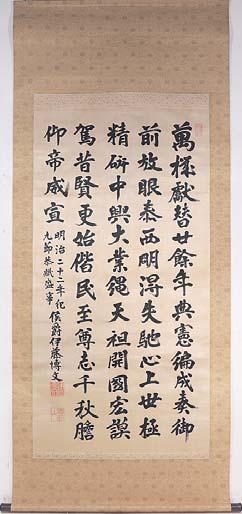 萬機獻替廿餘年典憲編成奏御
前放眼泰西明得失馳心上世極
精研中興大業繩天祖開國宏謨
駕昔賢更始偕民至尊志千秋瞻
仰帝威宣
明治二十二年紀
元節恭賦盛事
侯爵伊藤博文